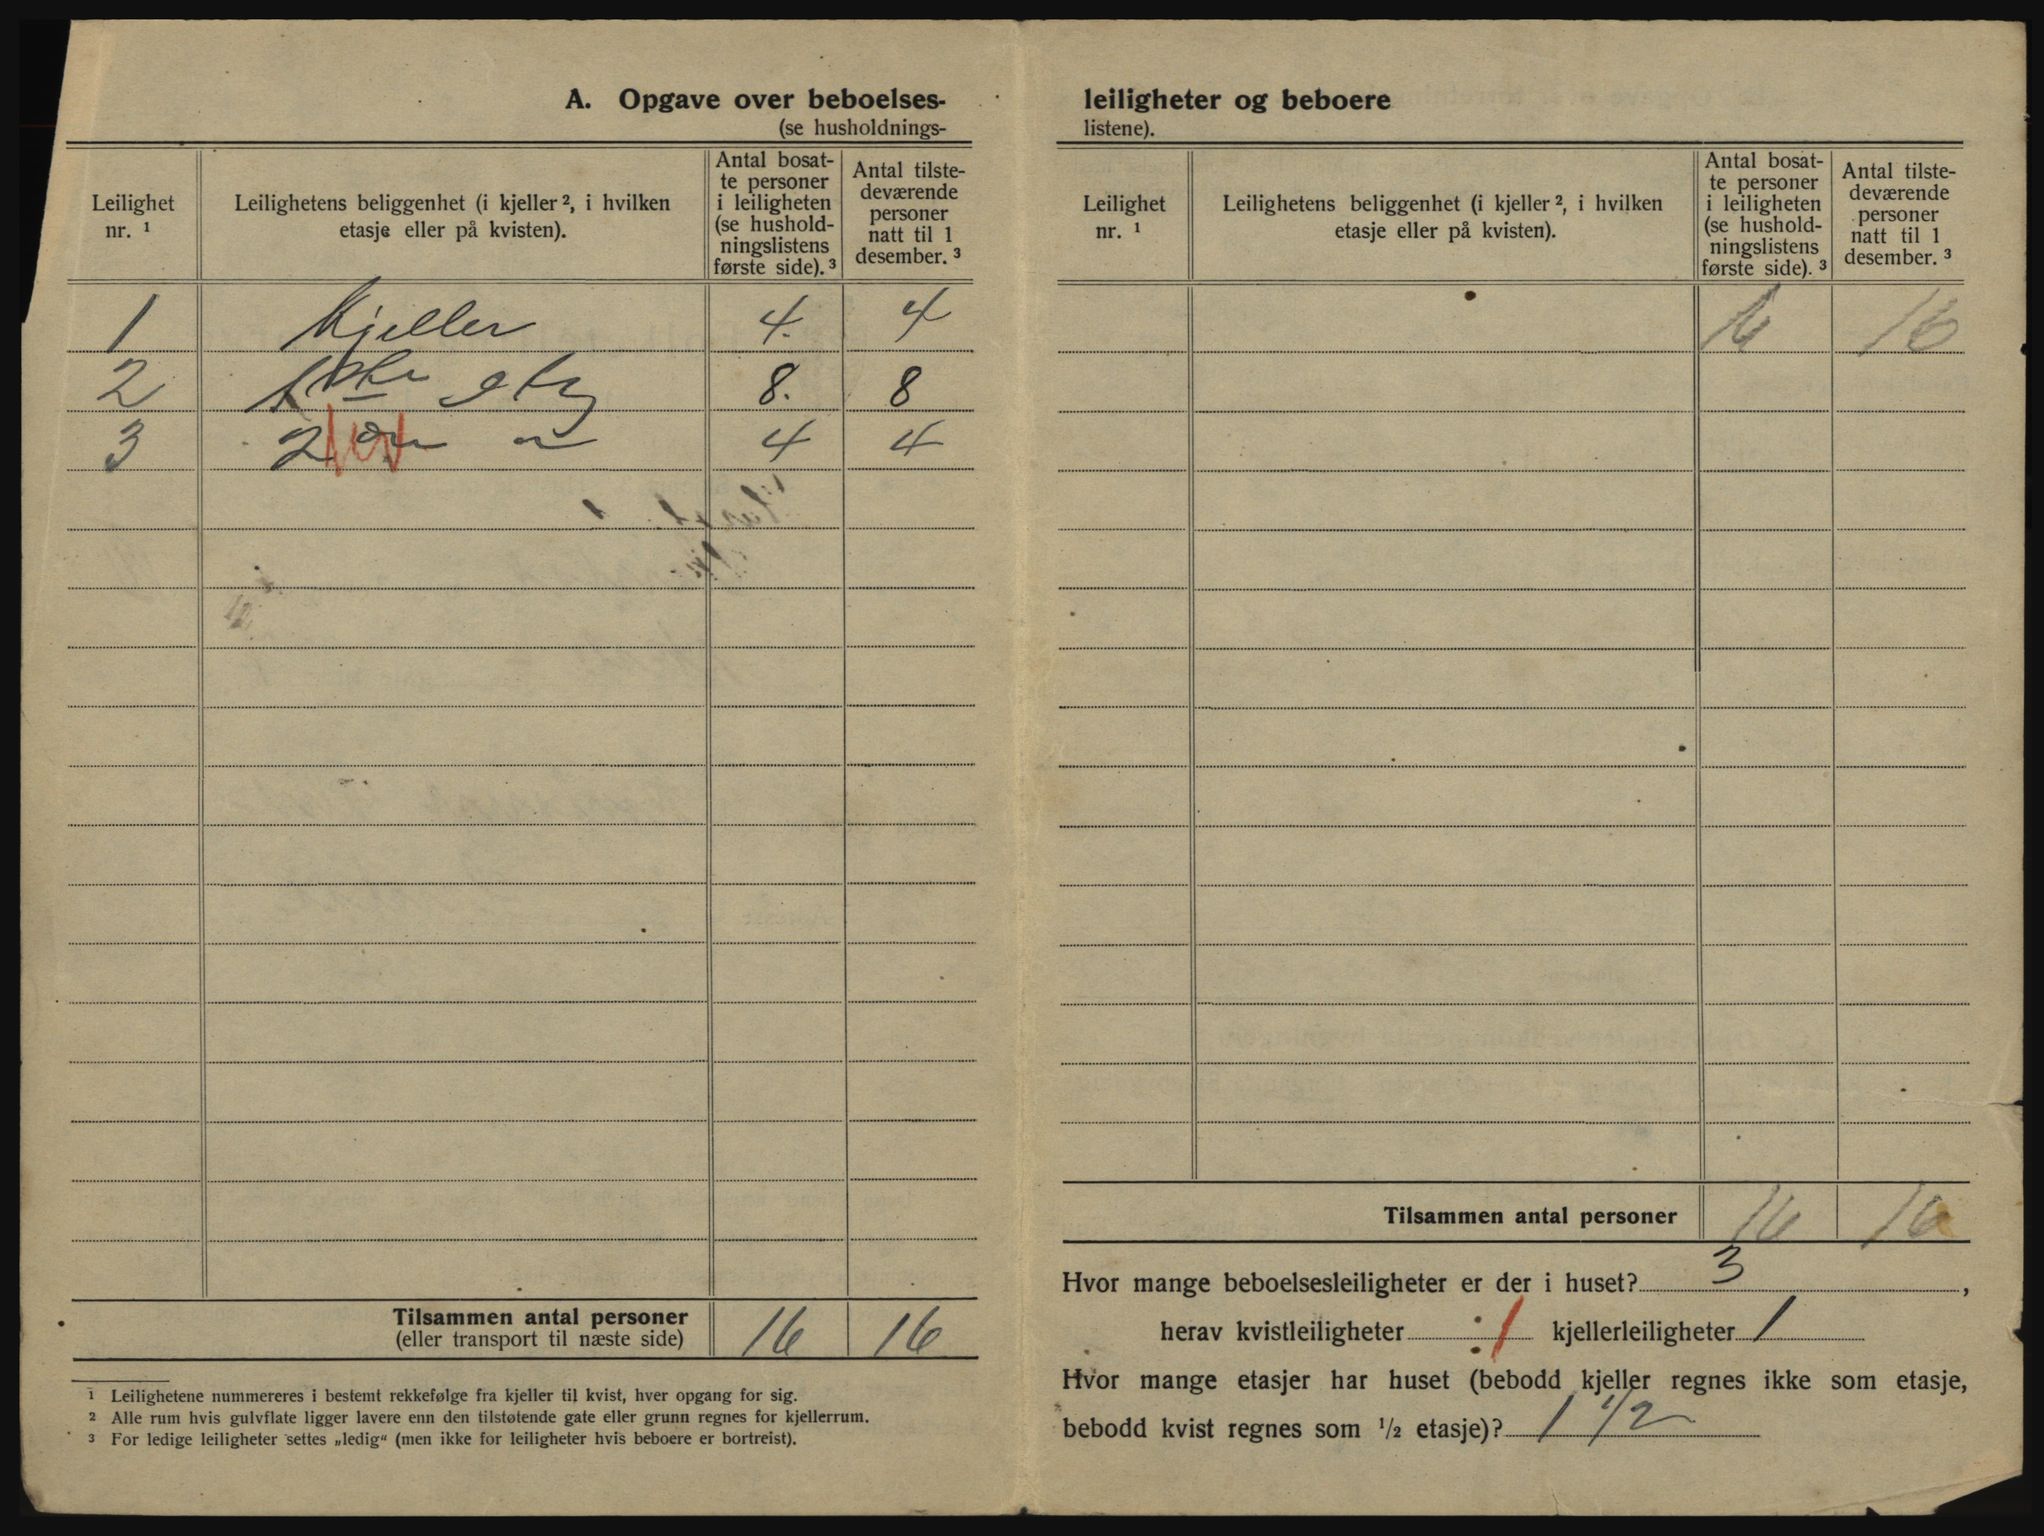 A. Opgave over beboelses-
(se husholdnings-
Leilighet nr. ¹
Leilighetens beliggenhet (i kjeller ², i hvilken etasje eller på kvisten).
Antal bosat-te personer i leiligheten (se hushold-ningslistens første side). ³
Antal tilste-deværende personer natt til 1 desember. ³
1 Kjeller 4. 4
2 1ste etg 8. 8
3 2 4 4
Tilsammen antal personer 16 16
(eller transport til næste side)
¹ Leilighetene nummereres i bestemt rekkefølge fra kjeller til kvist, hver opgang for sig.
² Alle rum hvis gulvflate ligger lavere enn den tilstøtende gate eller grunn regnes for kjellerrum.
³ For ledige leiligheter settes „ledig“ (men ikke for leiligheter hvis beboere er bortreist).
leiligheter og beboere
listene).
Leilighet nr. ¹
Leilighetens beliggenhet (i kjeller ², i hvilken etasje eller på kvisten).
Antal bosat-te personer i leiligheten (se hushold-ningslistens første side). ³
Antal tilste-deværende personer natt til 1 desember. ³
16 16
Tilsammen antal personer 16 16
Hvor mange beboelsesleiligheter er der i huset? 3 ,
herav kvistleiligheter 1 kjellerleiligheter 1
Hvor mange etasjer har huset (bebodd kjeller regnes ikke som etasje,
bebodd kvist regnes som ½ etasje)? 1 1/2